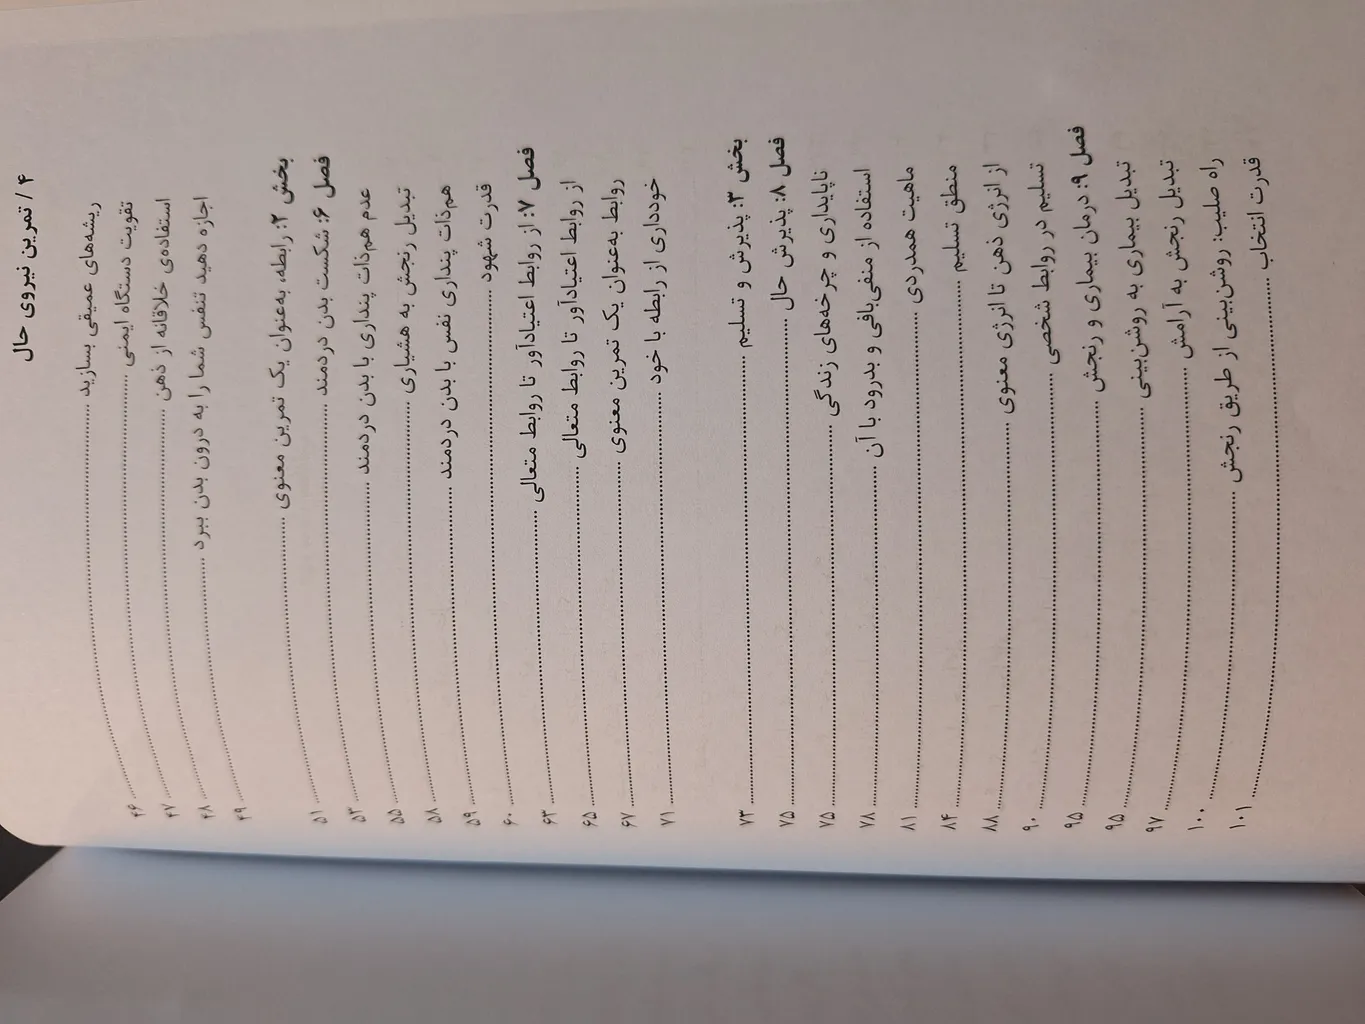 ۴ / تمرین نیروی حال
ریشه‌های عمیقی بسازید ........ ۴۶
تقویت دستگاه ایمنی ........ ۴۷
استفاده‌ی خلاقانه از ذهن ........ ۴۸
اجازه دهید تنفس شما را به درون بدن ببرد ........ ۴۹
بخش ۲: رابطه، به‌عنوان یک تمرین معنوی ........ ۵۱
فصل ۶: شکست بدن دردمند ........ ۵۳
عدم هم‌ذات پنداری با بدن دردمند ........ ۵۵
تبدیل رنجش به هشیاری ........ ۵۸
هم‌ذات پنداری نفس با بدن دردمند ........ ۵۹
قدرت شهود ........ ۶۰
فصل ۷: از روابط اعتیادآور تا روابط متعالی ........ ۶۳
از روابط اعتیادآور تا روابط متعالی ........ ۶۵
روابط به‌عنوان یک تمرین معنوی ........ ۶۷
خودداری از رابطه با خود ........ ۷۱
بخش ۳: پذیرش و تسلیم ........ ۷۳
فصل ۸: پذیرش حال ........ ۷۵
ناپایداری و چرخه‌های زندگی ........ ۷۵
استفاده از منفی‌بافی و بدرود با آن ........ ۷۸
ماهیت همدردی ........ ۸۱
منطق تسلیم ........ ۸۴
از انرژی ذهن تا انرژی معنوی ........ ۸۸
تسلیم در روابط شخصی ........ ۹۰
فصل ۹: درمان بیماری و رنجش ........ ۹۵
تبدیل بیماری به روشن‌بینی ........ ۹۵
تبدیل رنجش به آرامش ........ ۹۷
راه صلیب: روشن‌بینی از طریق رنجش ........ ۱۰۰
قدرت انتخاب ........ ۱۰۱